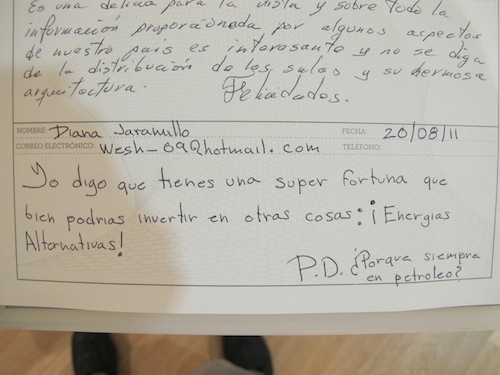 Es una delicia para la vista y sobre todo la
información proporcionada por algunos aspectos
de nuestro pais es interesante y no se diga
de la distribución de las salas y su hermosa
arquitectura. Felicidades.
NOMBRE: Diana Jaramillo FECHA: 20/08/11
CORREO ELECTRÓNICO: wesh_09@hotmail.com TELÉFONO:
Yo digo que tienes una super fortuna que
bien podrias invertir en otras cosas: ¡Energias
Alternativas!
P.D. ¿Porque siempre
en petroleo?